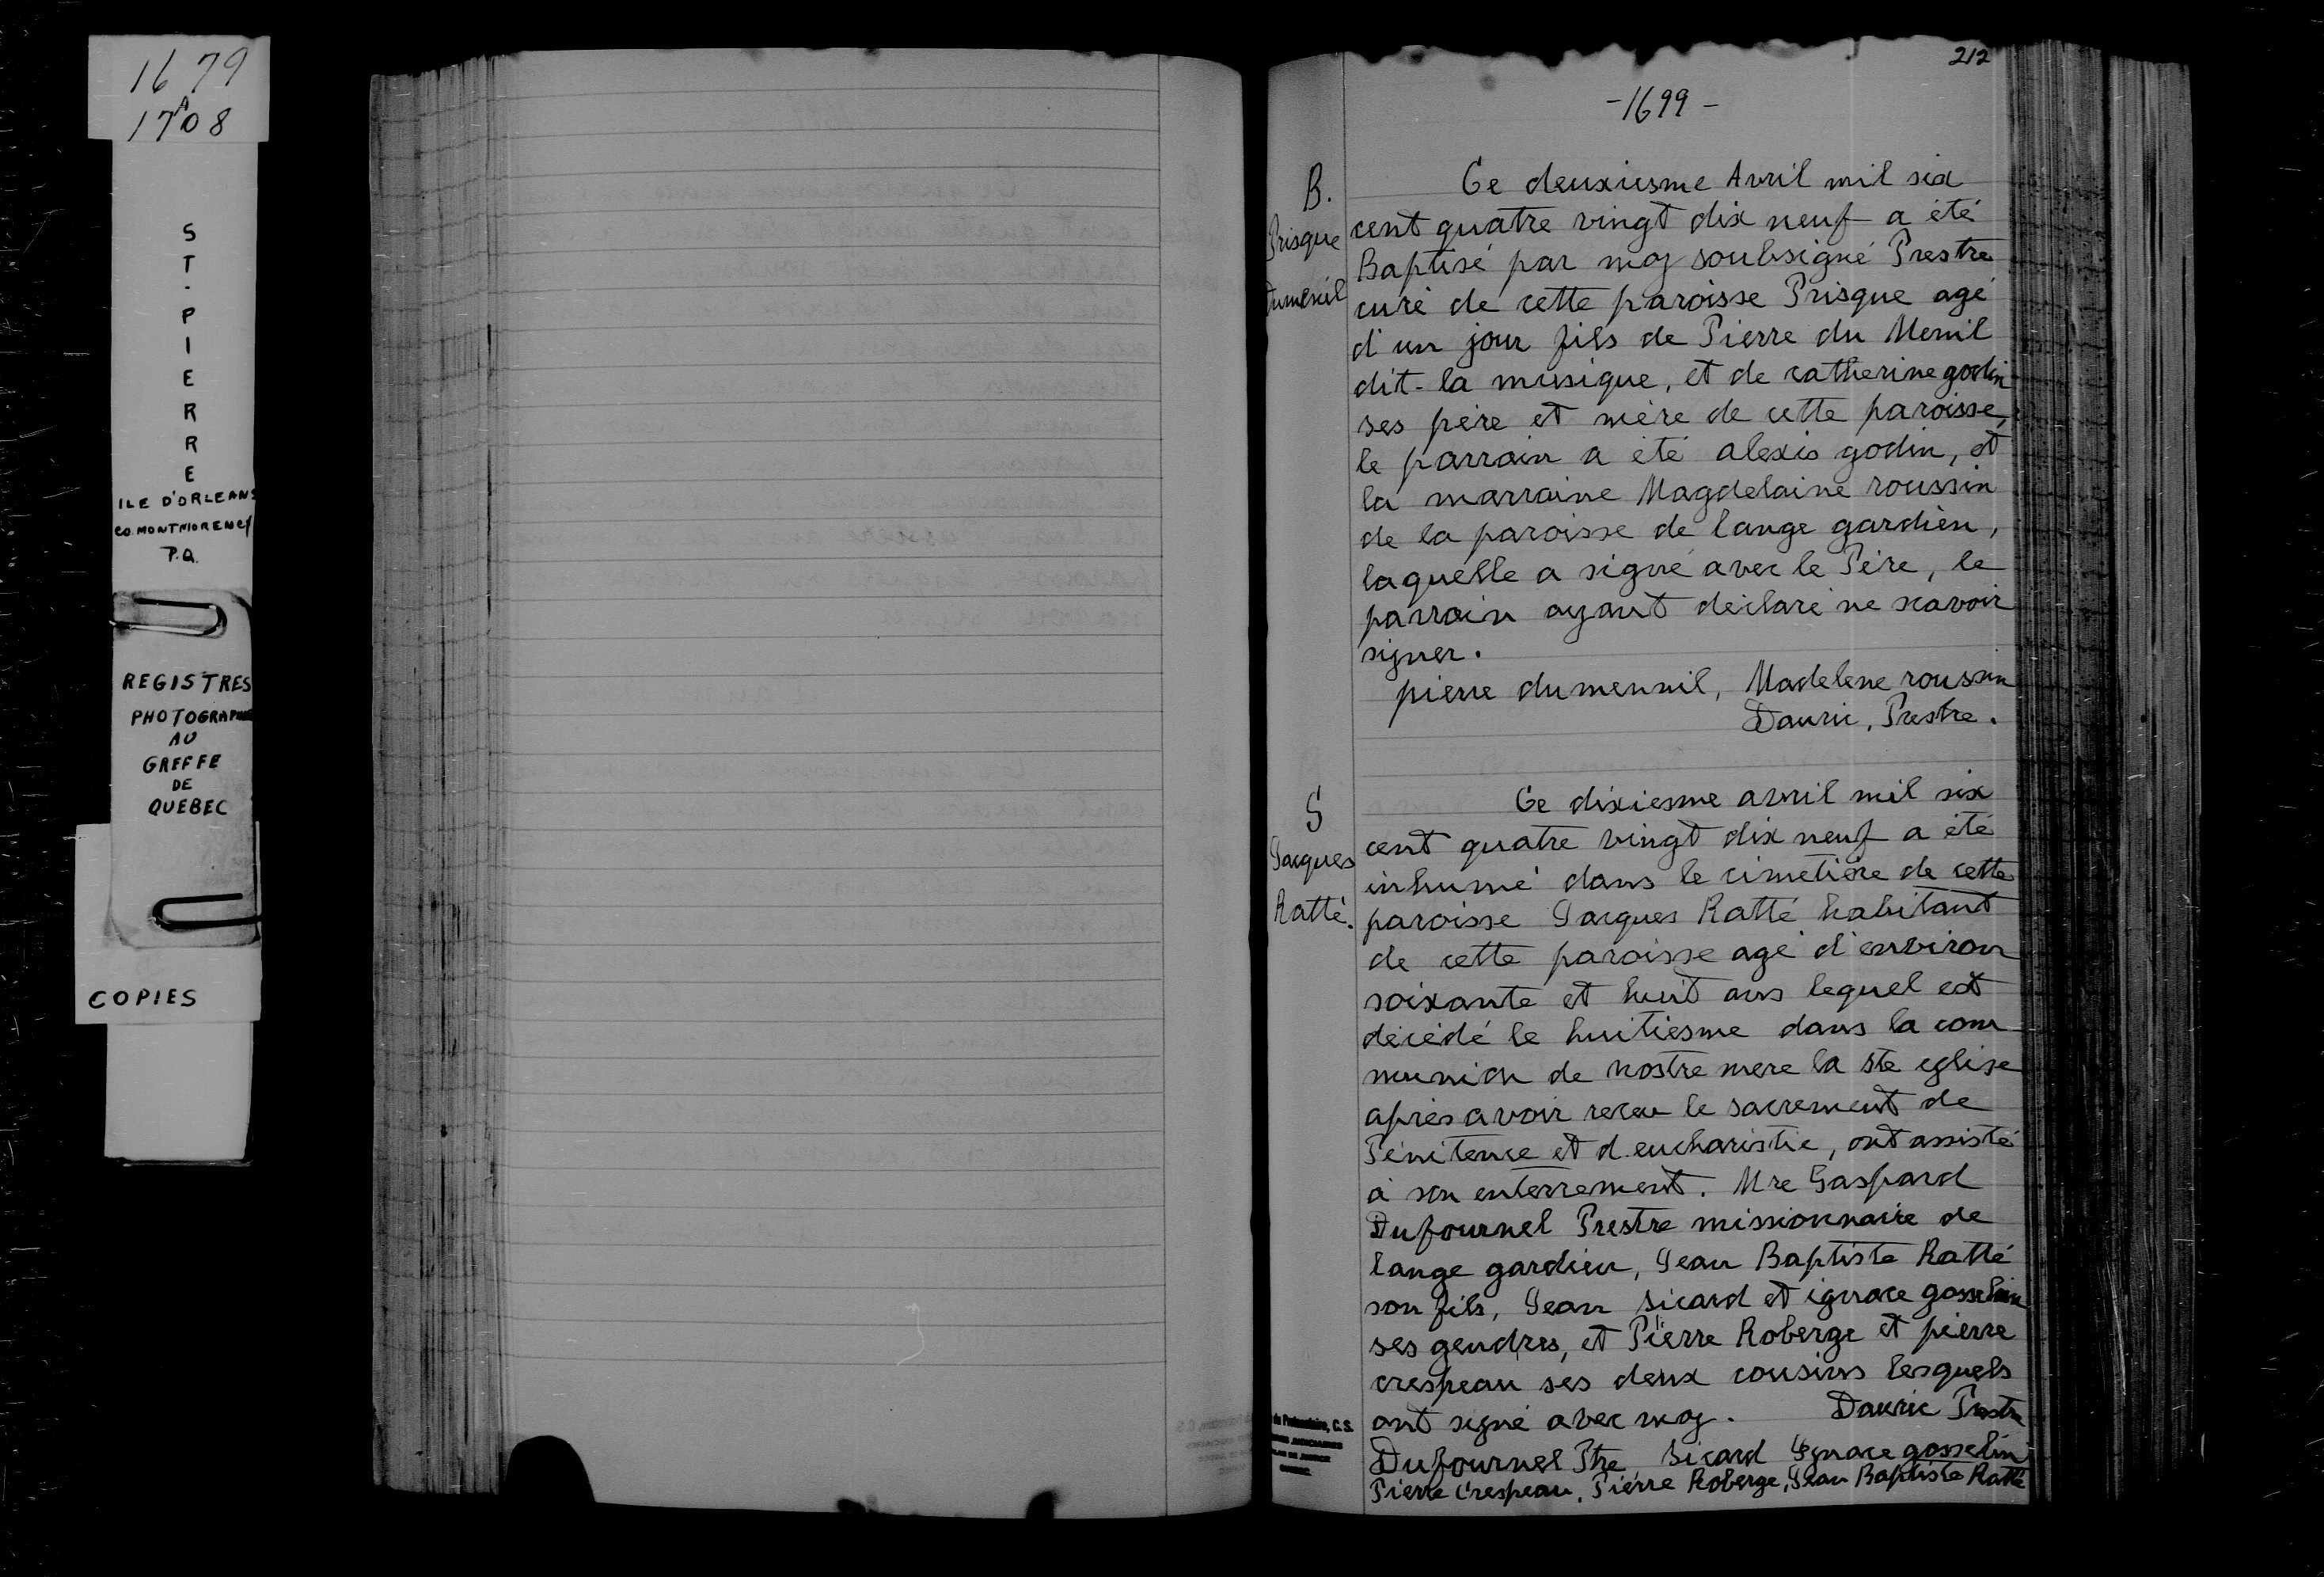 1679
A
1708
ST-PIERRE
ILE D'ORLEANS
CO. MONTMORENCY
P.Q.
REGISTRES
PHOTOGRAPHIE
AU
GREFFE
DE
QUEBEC
COPIES
212
-1699-
B.
Prisque
Dumesnil
Ce deuxiesme Avril mil six
cent quatre vingt dix neuf a été
Baptisé par moy soubsigné Prestre
curé de cette paroisse Prisque agé
d'un jour fils de Pierre du Menil
dit-la musique, et de catherine godin
ses père et mère de cette paroisse,
le parrain a été alexis godin, et
la marraine Magdelaine roussin
de la paroisse de lange gardien,
laquelle a signé avec le Père, le
parrain ayant déclaré ne scavoir
signer.
pierre dumennil, Madelene roussin
Dauric, Prestre.
S
Jacques
Ratté.
Ce dixiesme avril mil six
cent quatre vingt dix neuf a été
inhumé dans le cimetière de cette
paroisse Jacques Ratté habitant
de cette paroisse agé d'environ
soixante et huit ans lequel est
décédé le huitiesme dans la com
munion de nostre mere la ste eglise
après avoir receu le sacrement de
Pénitence et d.eucharistie, ont assisté
à son enterrement. Mre Gaspard
Dufournel Prestre missionnaire de
lange gardien, Jean Baptiste Ratté
son fils, Jean Sicard et ignace gosselin
ses gendres, et Pierre Roberge et pierre
crespeau ses deux cousins lesquels
ont signé avec moy. Dauric Prestre
Dufournel Ptre Sicard Ignace gosselin
Pierre Crespeau, Pierre Roberge, Jean Baptiste Ratté